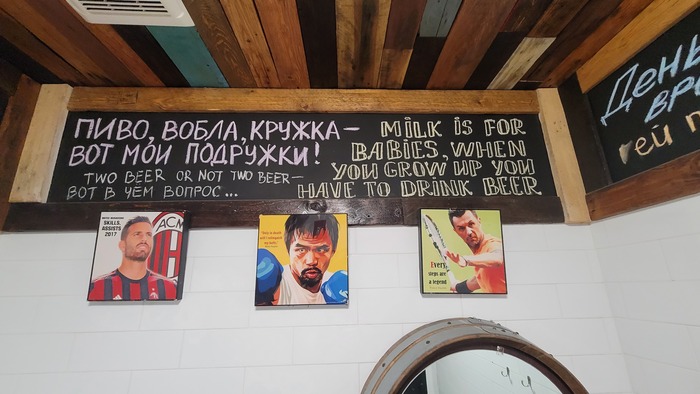 ПИВО, ВОБЛА, КРУЖКА —
ВОТ МОИ ПОДРУЖКИ!
TWO BEER OR NOT TWO BEER —
ВОТ В ЧЕМ ВОПРОС...
MILK IS FOR
BABIES, WHEN
YOU GROW UP YOU
HAVE TO DRINK BEER
День
ей п
SKILLS,
ASSISTS
2017
ACM
Every
steps are
a legend